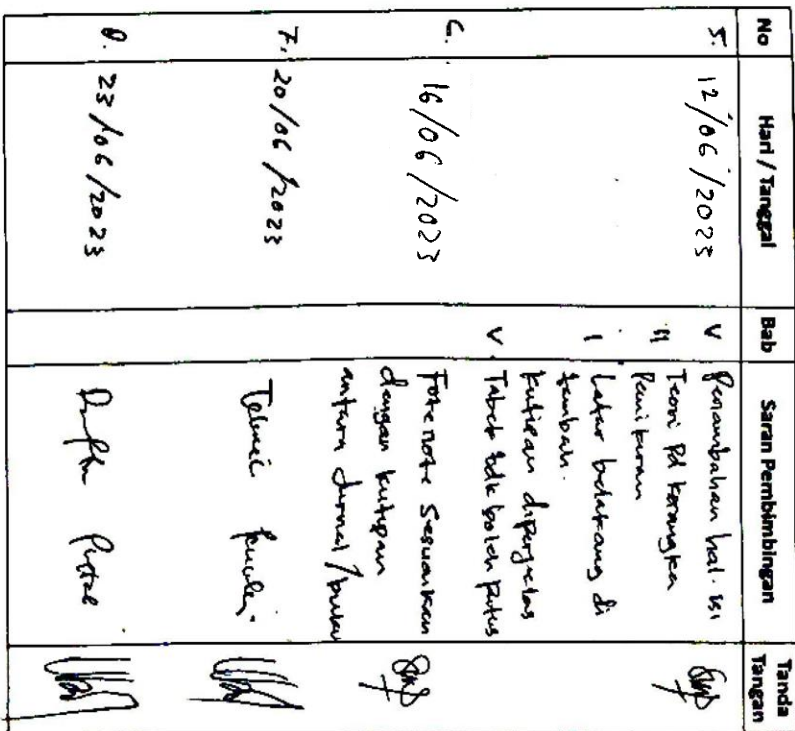 No Hari / Tanggal Bab Saran Pembimbingan Tanda Tangan
5. 12/06/2023 V Penambahan hal. isi
II Teori Pd Kerangka
Pemikiran
I Latar belakang di
tambah.
Kutipan diperjelas
V Tabel tdk boleh putus
6. 16/06/2023 Footnote Sesuaikan
dengan kutipan
antara Jurnal/buku
7. 20/06/2023
8. 23/06/2023 Daftar